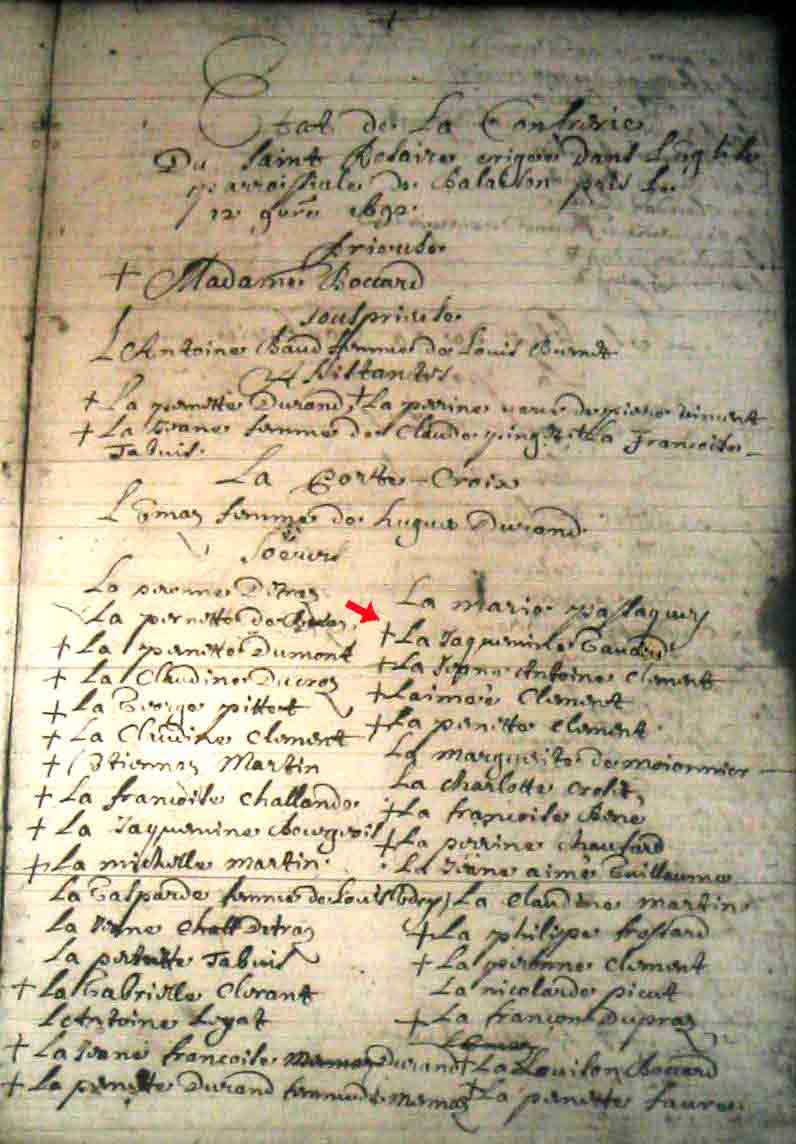 Etat de La Confrerie
Du Saint Rosaire erigee dans Leglise
parroissiale de Balaison pris Le
12 9bre 1692
prieuse
+ Madame Boccard
sousprieuse
L'Antoine Baud femme de Louis
Assistantes
+ La pernette Durand + La perrine veuve de pierre vincent
+ La Jeane femme de Claude + La Francoise
Tabuis.
La Porte-Croix
femme de hugue Durand
Soeurs
La peronne Detraz
La pernette de
+ La pernette Dumont
+ La Claudine Ducroz
+ La George pittet
+ La Claudine Clement
+ Etiennaz Martin
+ La francoise Challande
+ La Jaquemine Bourgeois
+ La michelle martin
La Gasparde femme de Louis
La Jeane Detraz
La pernette Tabuis
+ La Gabrielle Clerant
L'Antoine Legat
+ La Jeane francoise Durand
+ La pernette Durand femme de memaz
La marie passaquey
+ La Jaquemine Gaudin
+ La Jeane Antoine Clement
+ Laimee Clement
+ La pernette Clement
La marguerite de moionnier
La charlotte Crolit
+ La francoise Bene
+ La perrine chausard
La Jeane aime Guillaume
La Claudine martin
+ La philippe frossard
+ La peronne Clement
La nicolarde picut
+ La francon Dupraz
+ La Louison Boccard
+ La pernette faure